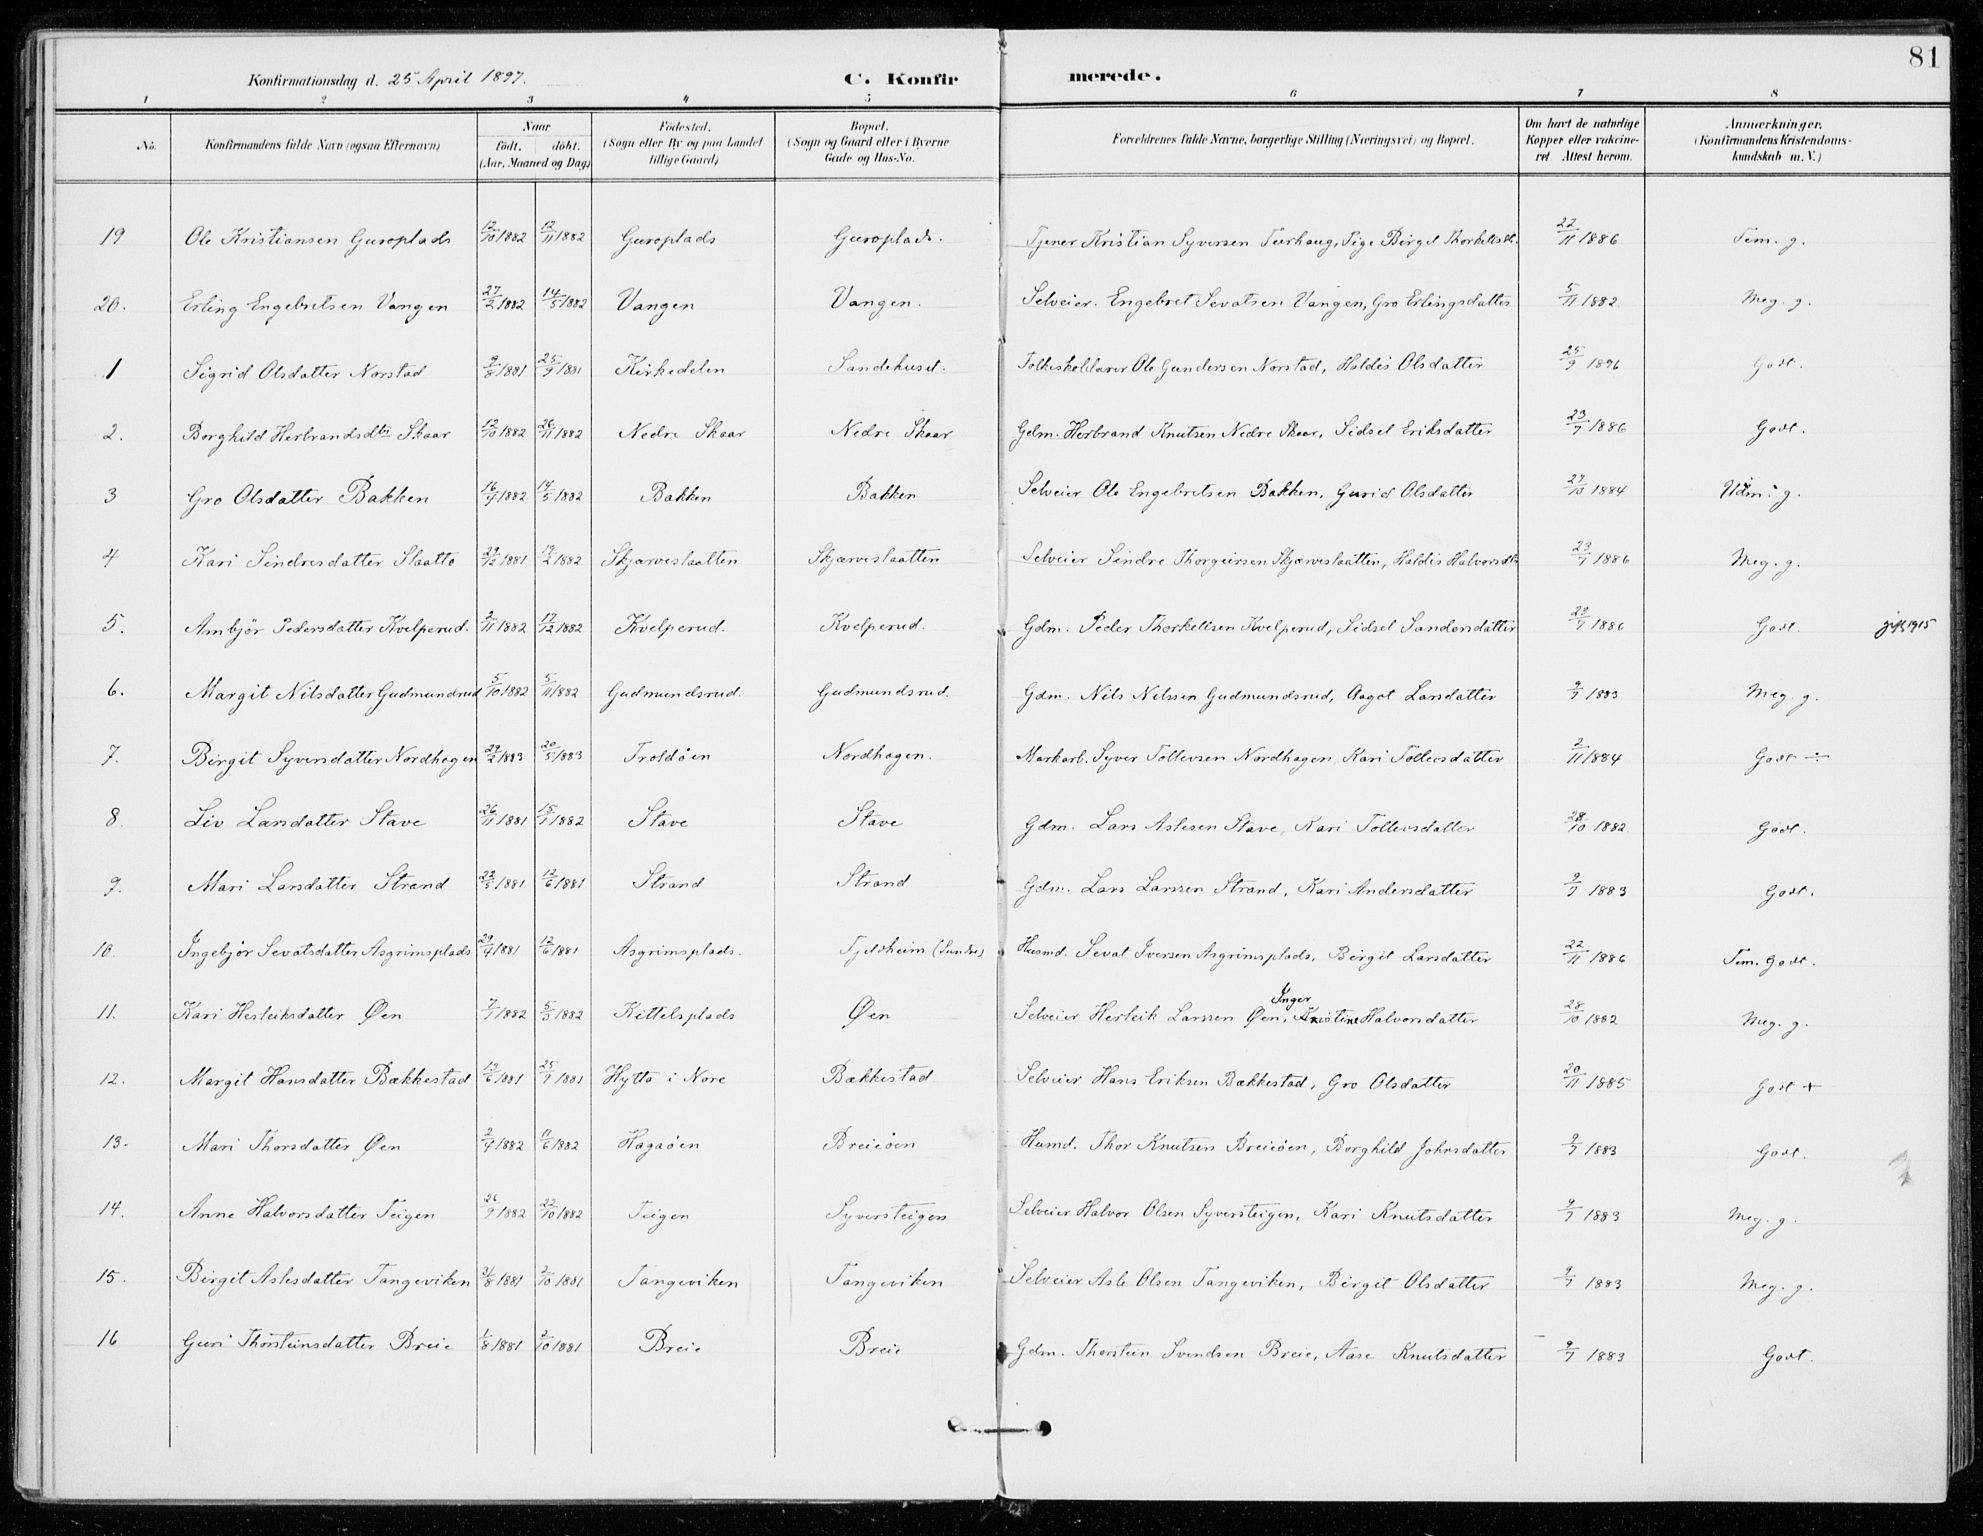 81
Konfirmationsdag d. 25 April 1897. C. Konfirmerede.
1 2 3 4 5 6 7 8
No. Konfirmandens fulde Navn (ogsaa Efternavn) Naar født. døbt. (Aar, Maaned og Dag) Fødested. (Sogn eller By og paa Landet tillige Gaard) Bopæl. (Sogn og Gaard eller i Byerne Gade og Hus-No. Forældrenes fulde Navne, borgerlige Stilling (Næringsvei) og Bopæl. Om havt de naturlige Kopper eller vakcineret. Attest herom. Anmærkninger. (Konfirmandens Kristendomskundskab m. V.)
19 Ole Kristiansen Guroplads 12/10 1882 12/11 1882 Guroplads Guroplads. Tjener Kristian Syversen Turhaug, Pige Birgit Thorkelsdt. 22/11 1886 Tem. g.
20. Erling Engebretsen Vangen 27/2 1882 14/5 1882 Vangen Vangen. Selveier. Engebret Sevatsen Vangen, Gro Erlingsdatter 5/11 1882. Meg. g.
1 Sigrid Olsdatter Norstad 9/8 1881 25/9 1881 Kirkedelen Sandehuset. Folkeskolelærer Ole Gundersen Norstad, Haldis Olsdatter 25/9 1896 Godt.
2. Borghild Herbrandsdtr Skaar 12/10 1882 26/11 1882 Nedre Skaar Nedre Skaar Gdm. Herbrand Knutsen Nedre Skaar, Sidsel Eriksdatter 23/7 1886 Godt.
3 Gro Olsdatter Bakken 16/4 1882 14/5 1882 Bakken Bakken Selveier Ole Engebretsen Bakken, Gurid Olsdatter 27/10 1884 Udm. g.
4 Kari Sindresdatter Slaatto 29/12 1881 19/2 1882 Skjærveslaatten Skjærveslaatten Selveier Sindre Thorgeirsen Skjærveslaatten, Haldis Halvorsdt. 23/7 1886 Meg. g.
5. Ambjør Pedersdatter Kvelperud. 2/11 1882 17/12 1882 Kvelperud. Kvelperud. Gdm. Peder Thorkellsen Kvelperud, Sidsel Sandersdatter 23/7 1886 Godt. gift 1915
6. Margit Nilsdatter Gudmundrud 5/10 1882 5/11 1882 Gudmundsrud. Gudmundsrud. Gdm. Nils Nilssen Gudmundsrud, Aagot Larsdatter 9/7 1883 Meg. g.
7. Birgit Syversdatter Nordhagen 29/2 1883 20/5 1883 Troldøen Nordhagen. Markarb. Syver Tollevsen Nordhagen, Kari Tollevsdatter 2/11 1884 Godt ÷
8. Liv Larsdatter Stave 26/11 1881 15/1 1882 Stave Stave Gdm. Lars Aslesen Stave, Kari Tollevsdatter 28/10 1882. Godt.
9. Mari Larsdatter Strand 22/5 1881 12/6 1881 Strand Strand Gdm. Lars Larssen Strand, Kari Andersdatter 9/7 1883 Godt.
10. Ingebjør Sevatsdatter Asgrimsplads 29/4 1881 12/6 1881 Asgrimsplads. Tjeldheim (Sundre) Husmd. Sevat Iversen Asgrimsplads, Birgit Larsdatter 22/11 1886 Tem. Godt.
11. Kari Herleiksdatter Øen 7/1 1882 5/3 1882 Kittelsplads Øen Selveier Herleik Larssen Øen, Kristine Inger Halvorsdatter 28/10 1882 Meg. g.
12. Margit Hansdatter Bækkestad 13/6 1881 25/9 1881 Hytta i Nore Bækkestad Selveier Hans Eriksen Bækkestad, Gro Olsdatter 20/11 1885 Godt +
13. Mari Thorsdatter Øen 2/4 1882 11/6 1882 Hagaøen Breieøen Husmd. Thor Knutsen Breieøen, Borghild Johnsdatter 9/7 1883 Godt.
14. Anne Halvorsdatter Teigen 26/9 1882 22/10 1882 Teigen Syversteigen Selveier Halvor Olsen Syversteigen, Kari Knutsdatter 9/7 1883 Meg. g.
15. Birgit Aslesdatter Tangeviken 31/8 1881 2/10 1881 Tangeviken Tangeviken Selveier Asle Olsen Tangeviken, Birgit Olsdatter 9/7 1883 Meg. g.
16 Guri Thorsteinsdatter Breie 1/8 1881 2/10 1881 Breie Breie Gdm. Thorstein Svendsen Breie, Aase Knutsdatter 9/7 1883 Godt.